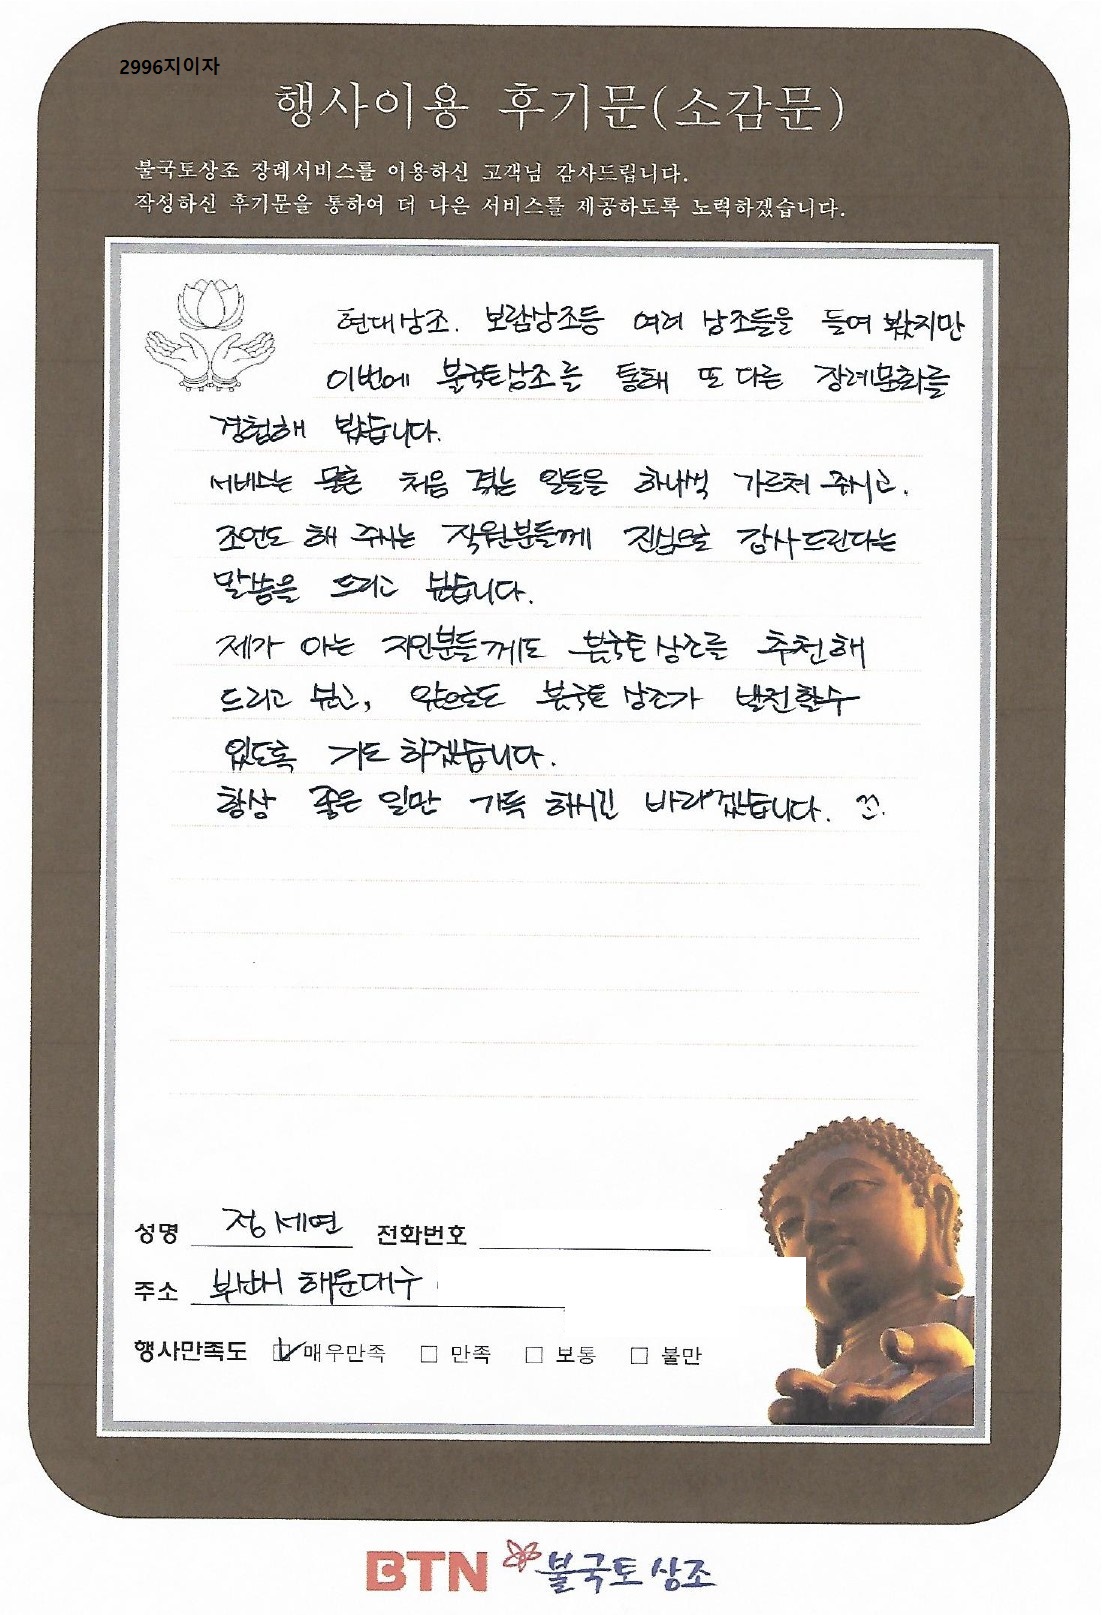 2996지이자
행사이용 후기문(소감문)
불국토상조 장례서비스를 이용하신 고객님 감사드립니다.
작성하신 후기문을 통하여 더 나은 서비스를 제공하도록 노력하겠습니다.
현대상조. 보람상조등 여러 상조들을 들여 봤지만
이번에 불국토상조를 통해 또 다른 장례문화를
경험해 봤습니다.
서비스는 물론 처음 겪는 일들을 하나씩 가르쳐 주시고.
조언도 해 주시는 직원분들께 진심으로 감사드린다는
말씀을 드리고 싶습니다.
제가 아는 지인분들께도 불국토 상조를 추천해
드리고 싶고, 앞으로도 불국토 상조가 발전할수
있도록 기도 하겠습니다.
항상 좋은 일만 가득 하시길 바라겠습니다.
성명 정세연 전화번호
주소 부산시 해운대구
행사만족도 매우만족 만족 보통 불만
BTN 불국토 상조